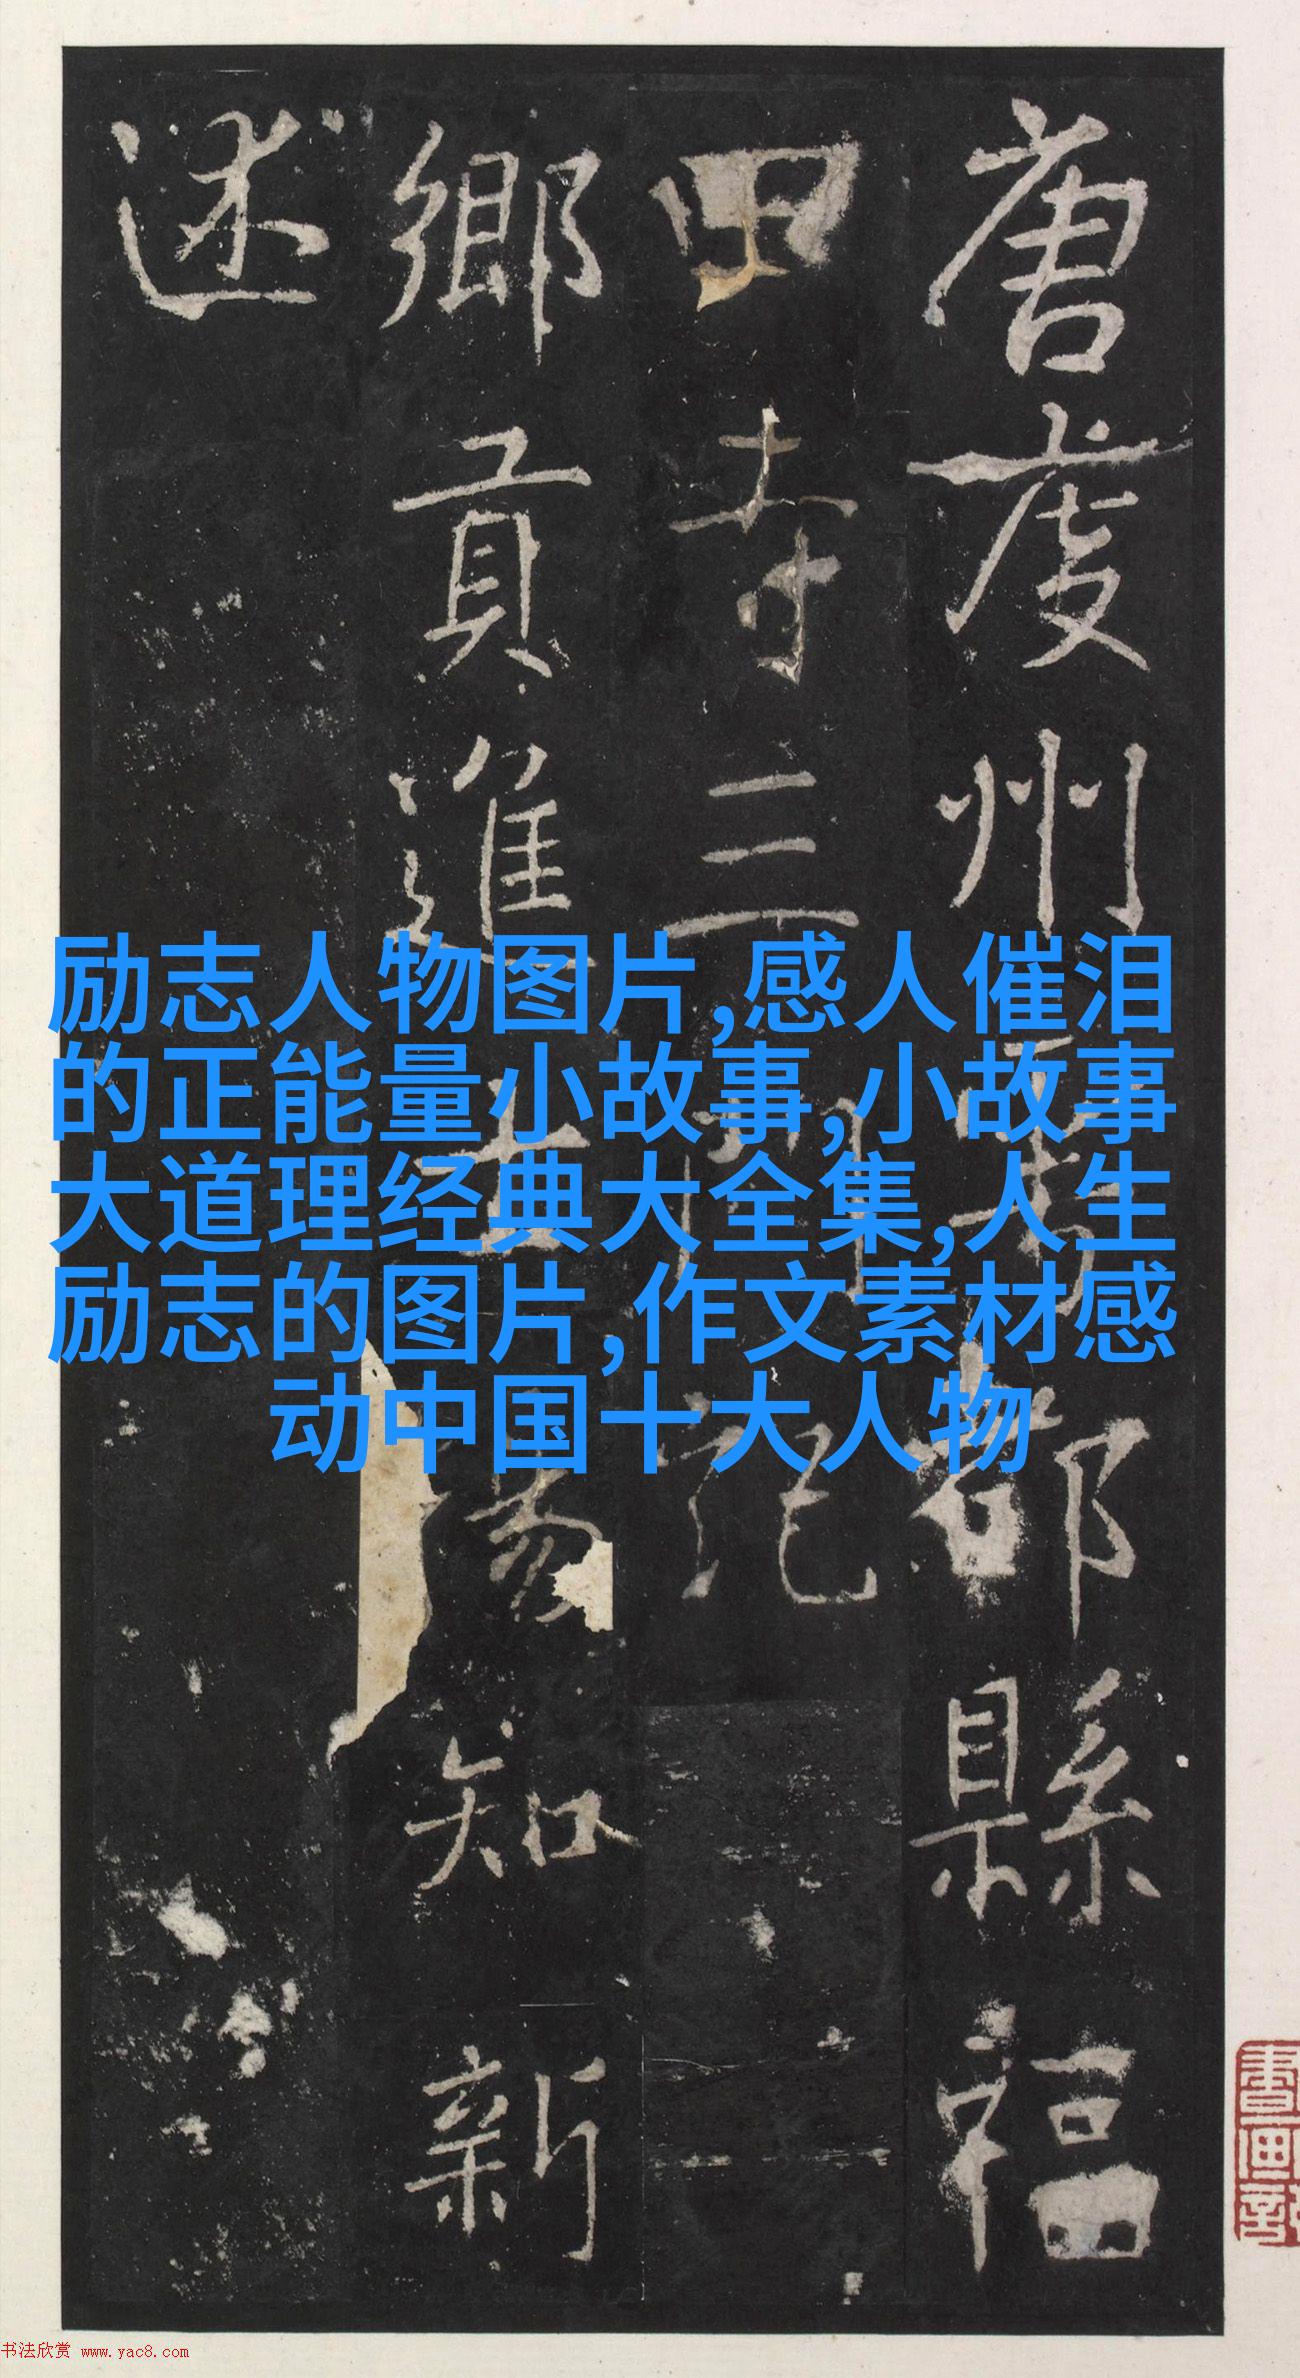 唐虔州雩都縣福
田寺三門記
鄉貢進士知新
述
励志人物图片,感人催泪
的正能量小故事,小故事
大道理经典大全集,人生
励志的图片,作文素材感
动中国十大人物
书法欣赏 www.yac8.com